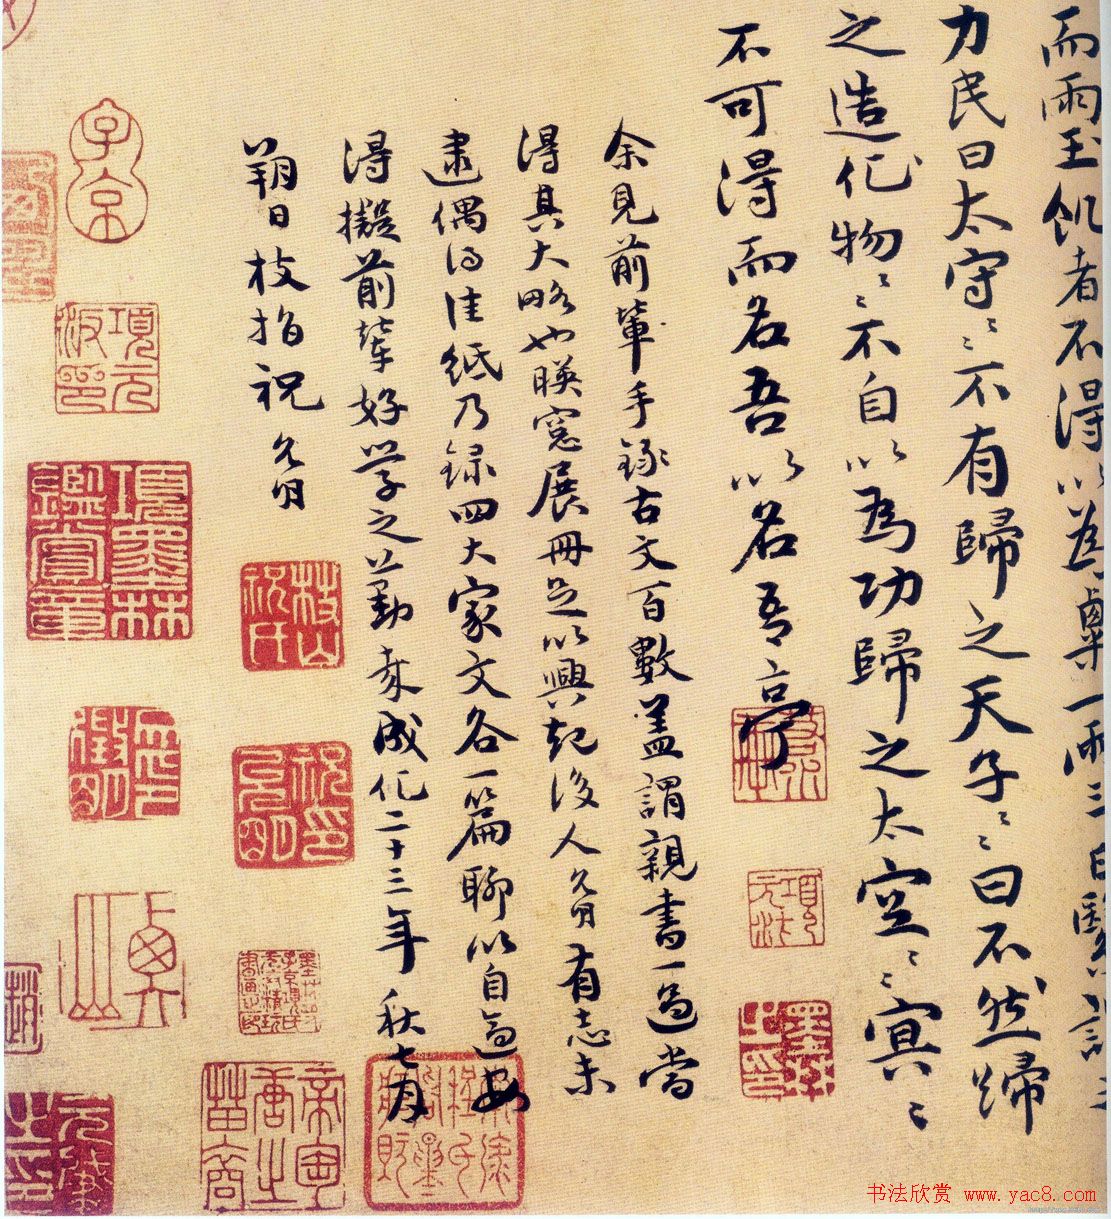 而雨玉飢者不得以為粟一雨三日繄誰之
力民曰太守〻不有歸之天子〻曰不然歸
之造化物〻不自以為功歸之太空〻冥〻
不可得而名吾以名吾亭
余見前輩手錄古文百數蓋謂親書一過當
得其大略也暎窓展冊足以興起後人允明有志未
逮偶得佳紙乃錄四大家文各一篇聊以自過安
得擬前輩好學之勤哉成化二十三年秋七月
朔日枝指祝允明
枝山祝氏
子京
項墨林鑑賞章
书法欣赏 www.yac8.com